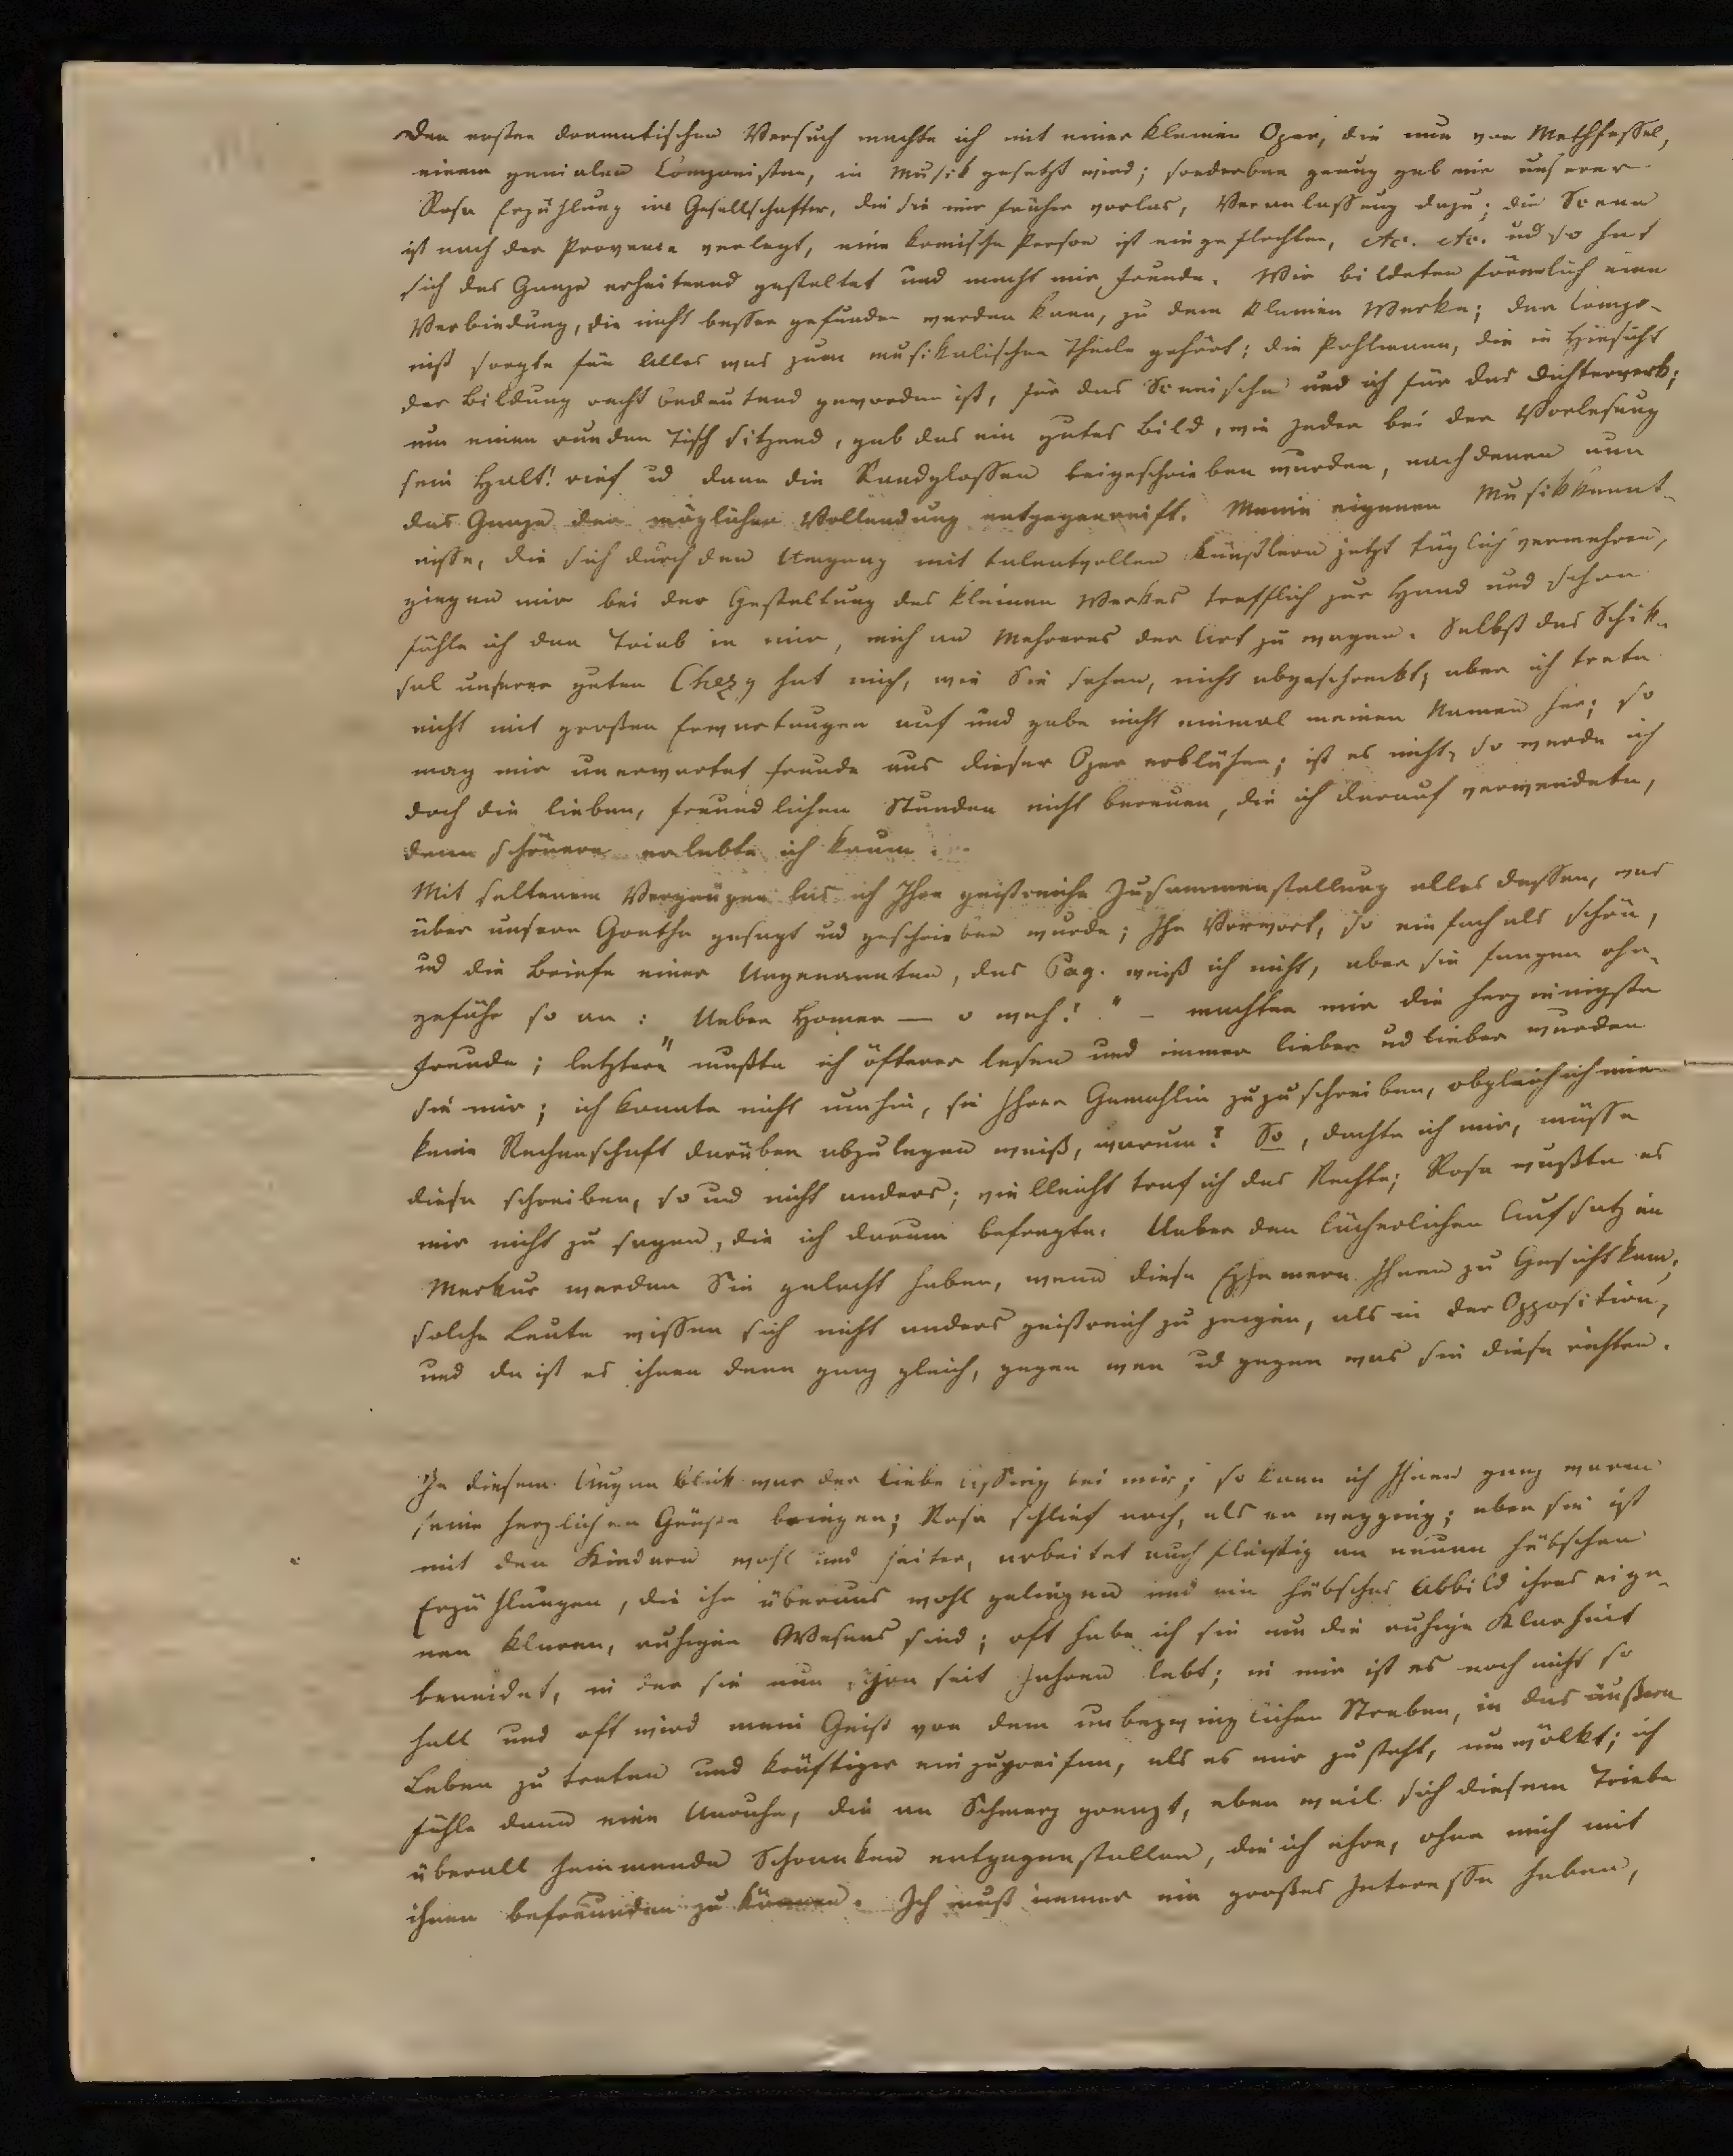 Den ersten dramatischen Versuch machte ich mit einer kleinen Oper, die nun von Methfessel,
einem genialen Componisten, in Musik gesetzt wird; sonderbar genug gab mir unserer
Rosa Erzählung im Gesellschafter, die sie mir früher vorlas, Veranlassung dazu; die Scene
ist nach der Provence verlegt, eine komische Person ist eingeflochten, etc. etc. ud so hat
sich das Ganze erheiternd gestaltet und macht mir Freude. Wir bildeten förmlich eine
Verbindung, die nicht besser gefunden werden kann, zu dem kleinen Werke; der Compo-
nist sorgte für Alles was zum musikalischen Theile gehört; die Pohlmann, die in Hinsicht
der Bildung recht bedeutend geworden ist, für das Scenische und ich für das Dichterwerk;
um einen runden Tisch sitzend, gab das ein gutes Bild, wie Jeder bei der Vorlesung
sein Halt! rief ud dann die Randglossen beigeschrieben wurden, nach denen nun
das Ganze der möglichen Vollendung entgegenreift. Meine eigenen Musikkennt-
nisse, die sich durch den Umgang mit talentvollen Künstlern jetzt täglich vermehren,
gingen mir bei der Gestaltung des kleinen Werkes trefflich zur Hand und schon
fühle ich den Trieb in mir, mich an Mehreres der Art zu wagen. Selbst das Schik-
sal unserer guten Chezy hat mich, wie Sie sehen, nicht abgeschreckt; aber ich trete
nicht mit großen Erwartungen auf und gebe nicht einmal meinen Namen her; so
mag mir unerwartet Freude aus dieser Oper erblühen; ist es nicht, so werde ich
doch die lieben, freundlichen Stunden nicht bereuen, die ich darauf verwendete,
denn schönere erlebte ich kaum.
Mit seltenem Vergnügen las ich Ihre geistreiche Zusammenstellung alles dessen, was
über unsern Goethe gesagt ud geschrieben wurde; Ihr Vorwort, so einfach als schön,
ud die Briefe einer Ungenannten, das Pag. weiß ich nicht, aber sie fangen ohn-
gefähr so an: „Ueber Homer — o weh!" — machten mir die herzinnigste
Freude; letztere mußte ich öfterer lesen und immer lieber ud lieber wurden
sie mir; ich konnte nicht umhin, sie Ihrer Gemahlin zuzuschreiben, obgleich ich mir
keine Rechenschaft darüber abzulegen weiß, warum? So, dachte ich mir, müsse
diese schreiben, so ud nicht anders; vielleicht traf ich das Rechte; Rosa wußte es
mir nicht zu sagen, die ich darum befragte. Ueber den lächerlichen Aufsatz im
Merkur werden Sie gelacht haben, wenn diese Ephemere Ihnen zu Gesicht kam;
solche Leute wissen sich nicht anders geistreich zu zeigen, als in der Opposition,
und da ist es ihnen denn ganz gleich, gegen wen ud gegen was sie diese richten.
In diesem Augenblick war der liebe Assing bei mir; so kann ich Ihnen ganz warm
seine herzlichen Grüße bringen; Rosa schlief noch, als er wegging; aber sie ist
mit den Kindern wohl und heiter, arbeitet auch fleißig an neuen hübschen
Erzählungen, die ihr überaus wohl gelingen und ein hübsches Abbild ihres eige-
nen klaren, ruhigen Wesens sind; oft habe ich sie um die ruhige Klarheit
beneidet, in der sie nun schon seit Jahren lebt; in mir ist es noch nicht so
hell und oft wird mein Geist von dem unbezwinglichen Streben, in das äußere
Leben zu treten und kräftiger einzugreifen, als es mir zusteht, umwölkt; ich
fühle dann eine Unruhe, die an Schmerz grenzt, eben weil sich diesem Triebe
überall hemmende Schranken entgegenstellen, die ich ehre, ohne mich mit
ihnen befreunden zu können. Ich muß immer ein großes Interesse haben,